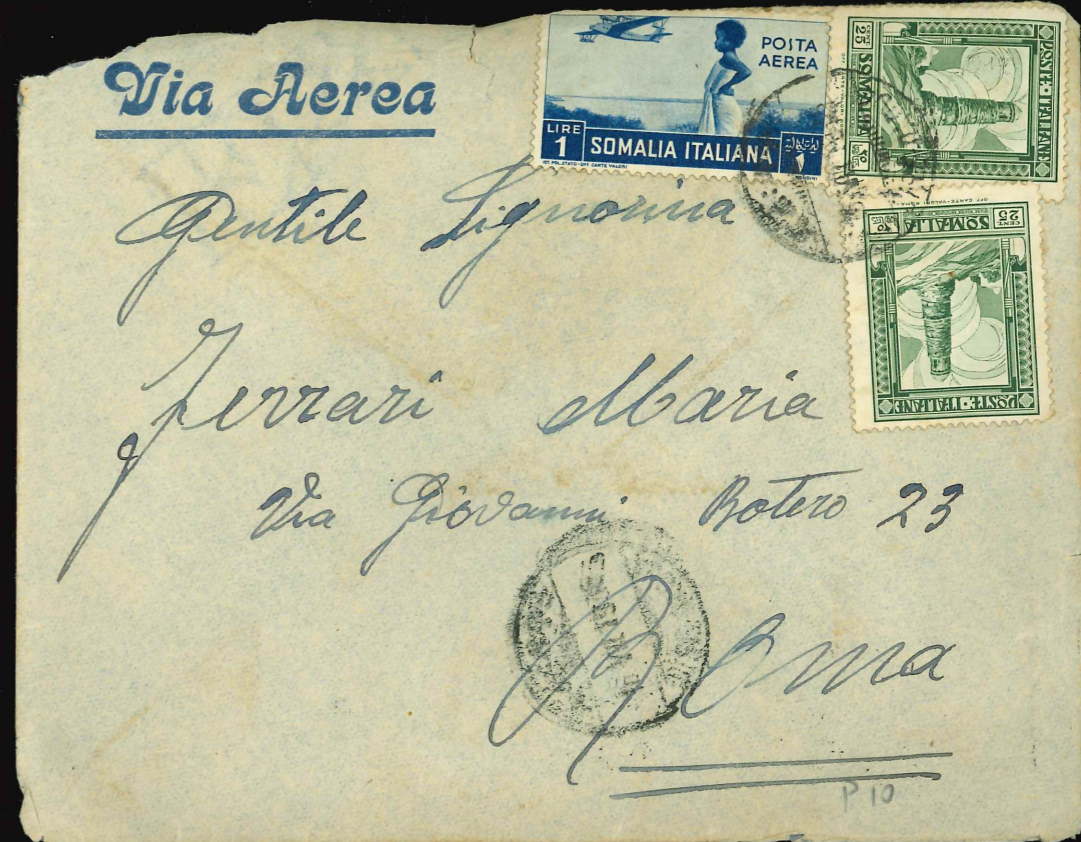 Via Aerea
POSTA
AEREA
LIRE
1
SOMALIA ITALIANA
IST. POL. STATO-OFF. CARTE VALORI
POSTE ITALIANE
SOMALIA
CENT
25
POSTE ITALIANE
SOMALIA
CENT
25
Gentile Signorina
Ferrari Maria
Via Giovanni Botero 23
Roma
P 10